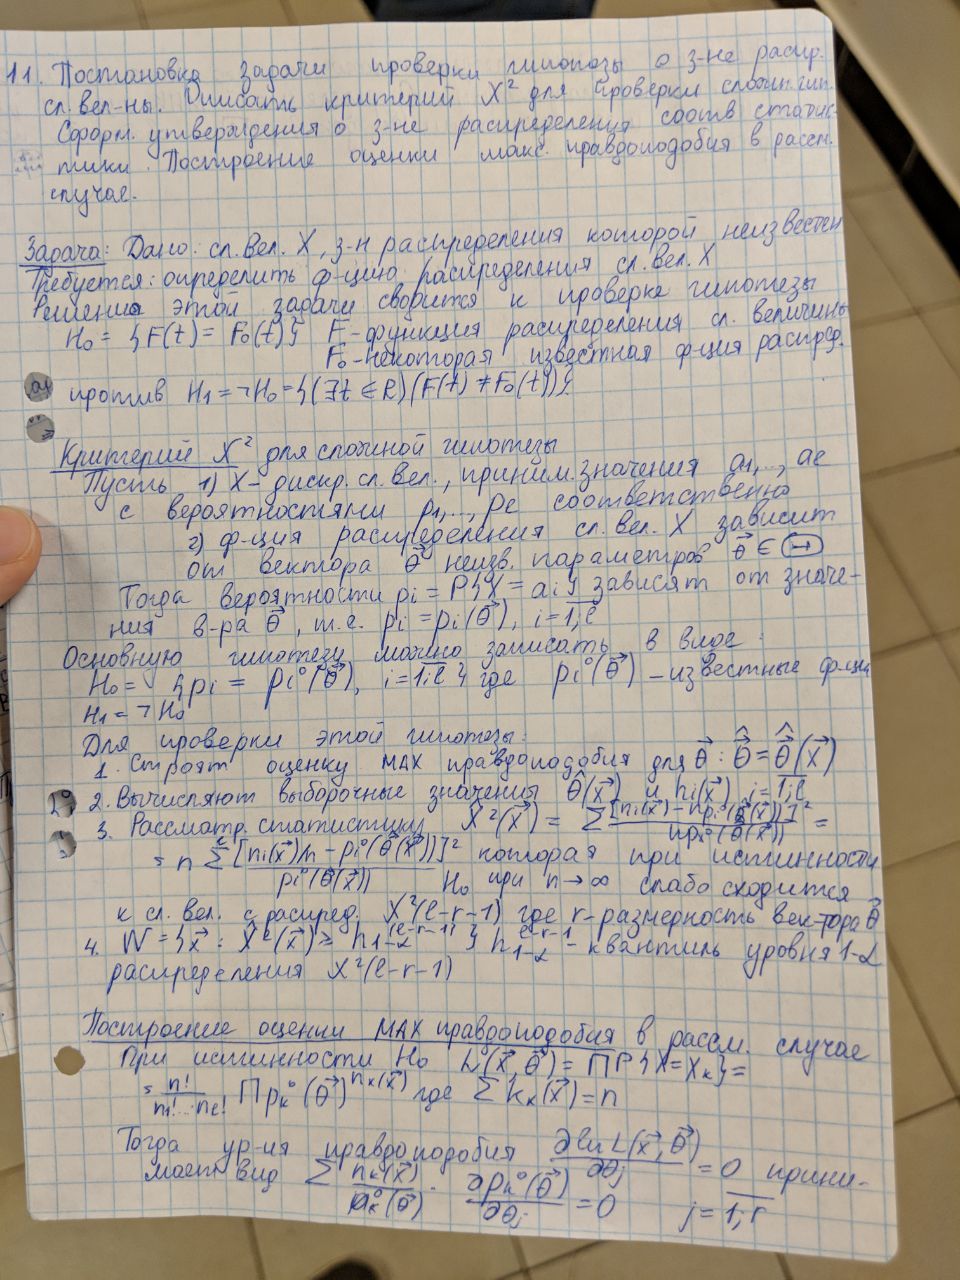 11. Постановка задачи проверки гипотезы о з-не распр.
сл. вел-ны. Описать критерий X² для проверки сложн. гип.
Сформ. утверждения о з-не распределения соотв статис-
тики. Построение оценки макс. правдоподобия в рассм.
случае.
Задача: Дано: сл. вел. X, з-н распределения которой неизвестен
Требуется: определить ф-цию распределения сл. вел. X
Решение этой задачи сводится к проверке гипотезы
H₀ = {F(t) = F₀(t)} F-функция распределения сл. величины
F₀-некоторая известная ф-ция распред.
против H₁ = ¬H₀ = {(∃t ∈ R)(F(t) ≠ F₀(t))}
Критерий X² для сложной гипотезы
Пусть 1) X - дискр. сл. вел., приним. значения a₁,..., aℓ
с вероятностями p₁,..., pℓ соответственно
2) ф-ция распределения сл. вел. X зависит
от вектора θ⃗ неизв. параметров θ⃗ ∈ Θ
Тогда вероятности pi = P{X = ai} зависят от значе-
ния в-ра θ⃗, т.е. pi = pi(θ⃗), i = 1,ℓ
Основную гипотезу можно записать в виде:
H₀ = {pi = pi°(θ⃗), i = 1,ℓ} где pi°(θ⃗) - известные ф-ции
H₁ = ¬H₀
Для проверки этой гипотезы:
1. Строят оценку MAX правдоподобия для θ⃗ : θ̂ = θ̂(X⃗)
2. Вычисляют выборочные значения θ̂(x⃗) и ni(x⃗), i = 1,ℓ
3. Рассматр. статистику X̂²(x⃗) = Σ [ni(x⃗) - npi°(θ̂(x⃗))]² / npi°(θ̂(x⃗)) =
= n Σ [ni(x⃗)/n - pi°(θ̂(x⃗))]² / pi°(θ̂(x⃗)) которая при истинности
H₀ при n → ∞ слабо сходится
к сл. вел. с распред. X²(ℓ-r-1) где r-размерность вектора θ⃗
4. W = {x⃗ : X̂²(x⃗) ≥ h₁₋α^(ℓ-r-1)} h₁₋α^(ℓ-r-1) - квантиль уровня 1-α
распределения X²(ℓ-r-1)
Построение оценки MAX правдоподобия в рассм. случае
При истинности H₀ L(X⃗, θ⃗) = ΠP{X = xₖ} =
= n! / n₁!...nℓ! Πpₖ°(θ⃗)^nₖ(x⃗) где Σ kₖ(x⃗) = n
Тогда ур-ия правдоподобия ∂ln L(x⃗, θ⃗) / ∂θj = 0 прини-
мает вид Σ nₖ(x⃗) / pₖ°(θ⃗) · ∂pₖ°(θ⃗) / ∂θj = 0 j = 1,r